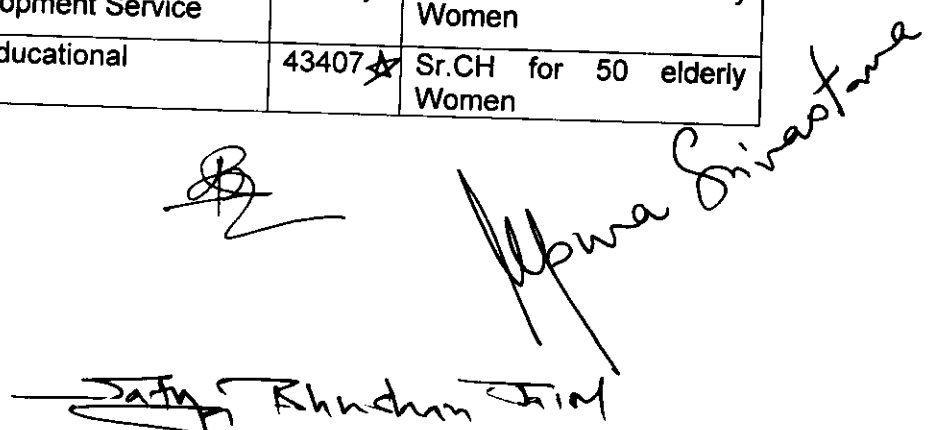 opment Service
Women
ducational 43407 Sr.CH for 50 elderly
Women
Srivastava
Satya Bhushan Jain